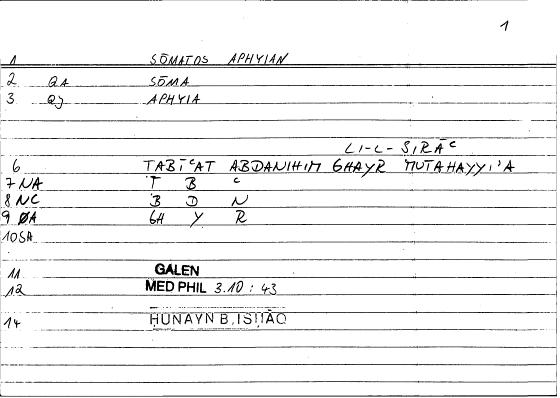 1
1 SŌMATOS APHYIAN
2 QA SŌMA
3 Qy APHYIA
LI-L-ṢIRĀʿ
6 ṬABĪʿAT ABDANIHIM GHAYR MUTAHAYYI'A
7 NA Ṭ B ʿ
8 NC B D N
9 ØA GH Y R
10 SA
11 GALEN
12 MED PHIL 3.10 : 43
14 ḤUNAYN B. ISḤĀQ